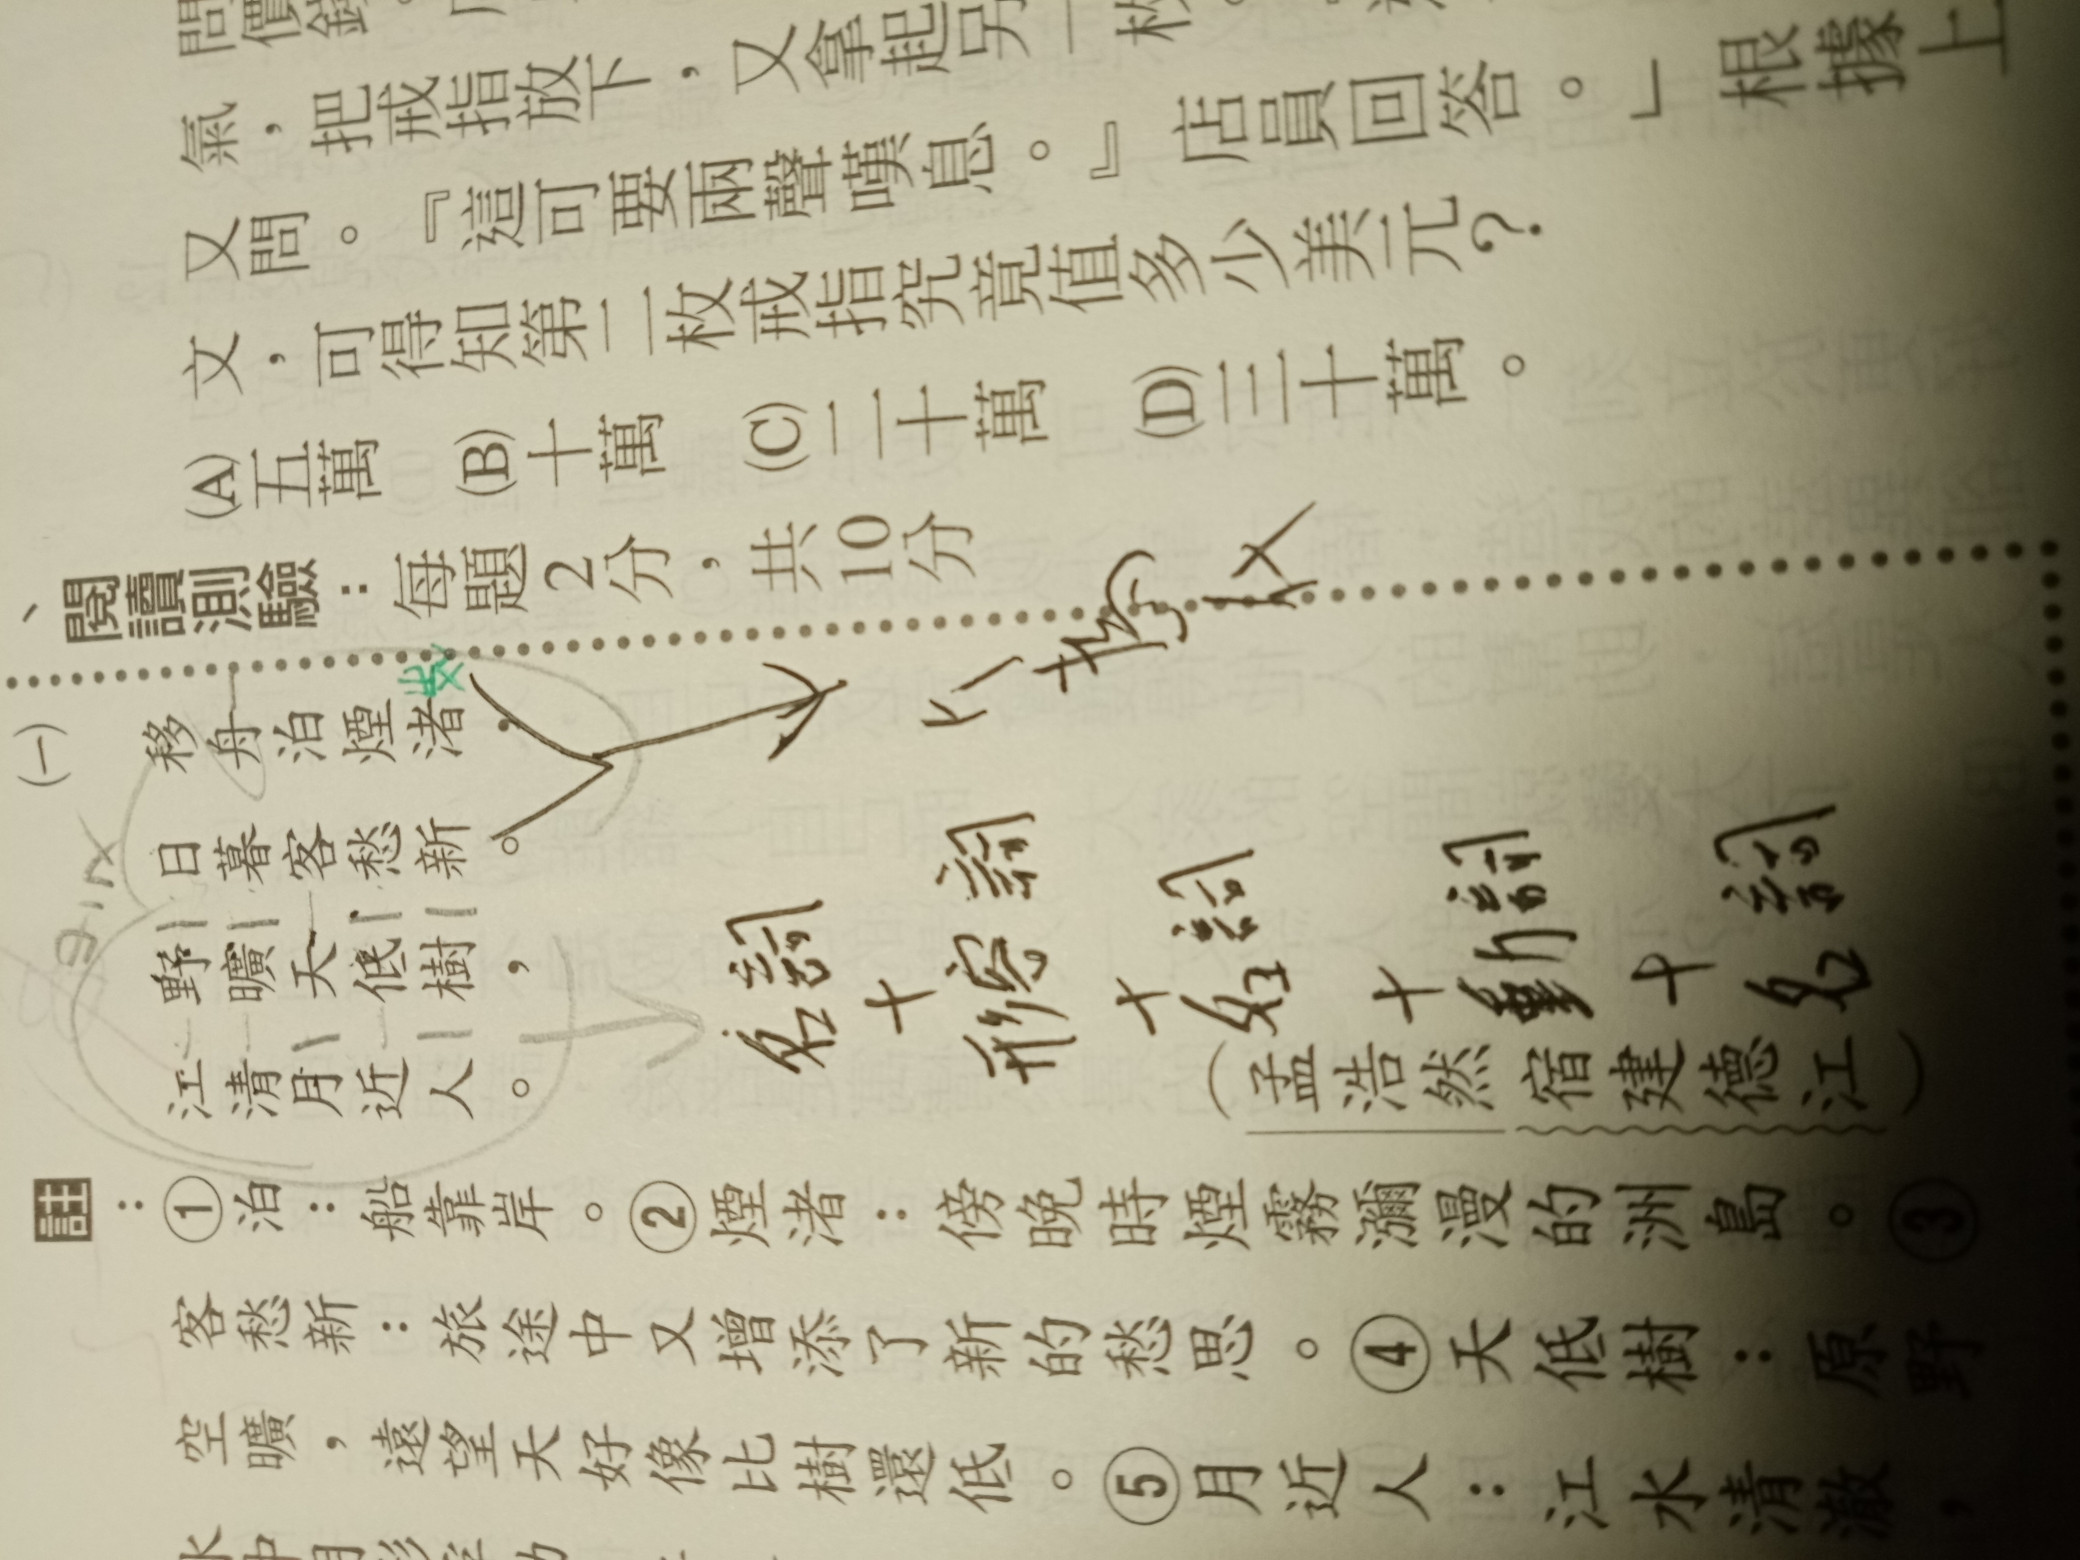 問價錢。
氣，把戒指放下，又拿起另一枚。
又問。『這可要兩聲嘆息。』店員回答。」根據上
文，可得知第二枚戒指究竟值多少美元？
(A)五萬 (B)十萬 (C)二十萬 (D)三十萬。
、閱讀測驗：每題2分，共10分
(一)
移舟泊煙渚，
日暮客愁新。
野曠天低樹，
江清月近人。
名詞+形容詞+名詞+動詞+名詞
（孟浩然宿建德江）
註：①泊：船靠岸。②煙渚：傍晚時煙霧瀰漫的洲島。③
客愁新：旅途中又增添了新的愁思。④天低樹：原野
空曠，遠望天好像比樹還低。⑤月近人：江水清澈，
水中月影